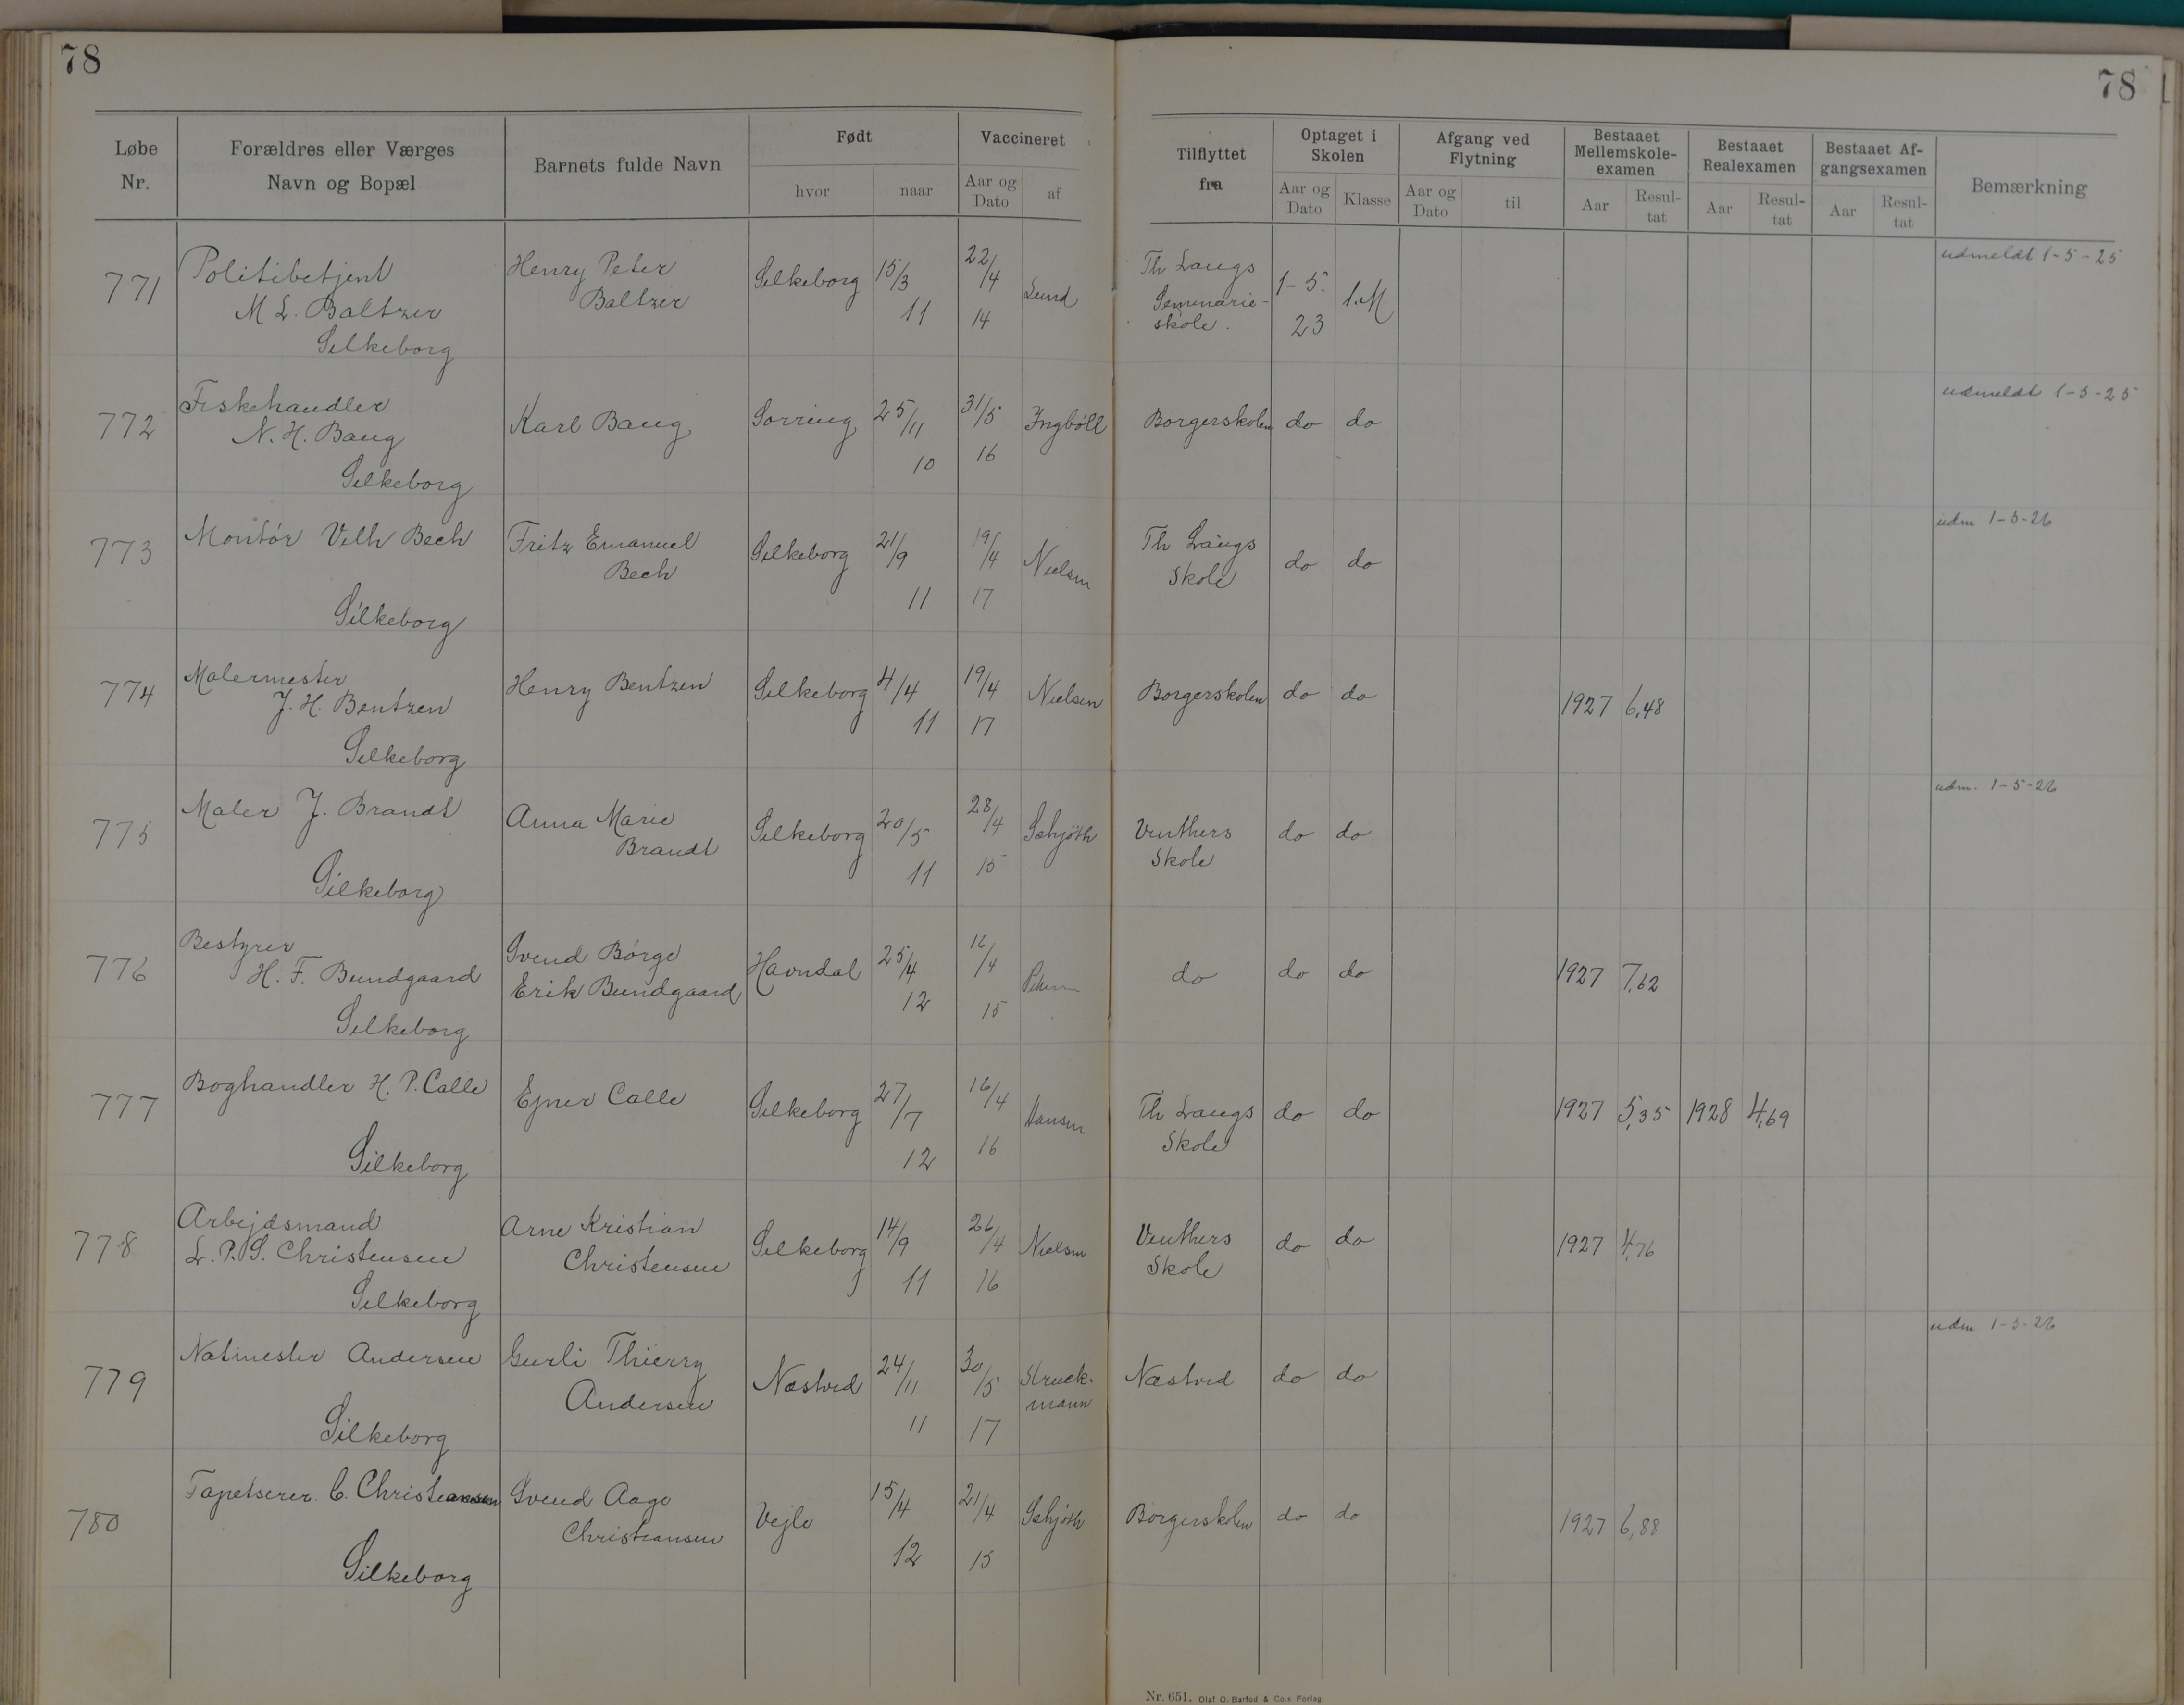 78
78
Løbe Nr.
Forældres eller Værges Navn og Bopæl
Barnets fulde Navn
Født
hvor
naar
Vaccineret
Aar og Dato
af
Tilflyttet fra
Optaget i Skolen
Aar og Dato
Klasse
Afgang ved Flytning
Aar og Dato
til
Bestaaet Mellemskole-examen
Aar
Resul-tat
Bestaaet Realexamen
Aar
Resul-tat
Bestaaet Af-gangsexamen
Aar
Resul-tat
Bemærkning
771 Politibetjent Henry Peter Silkeborg 15/3 22/4 Lund Th Langs 1-5. 1.M udmeldt 1-5-25
M L. Baltzer Baltzer 11 14 Seminarie- 23
Silkeborg skole.
772 Fiskehandler Karl Baug Sorring 25/11 31/5 Ingböll Borgerskolen do do udmeldt 1-5-25
N. H. Baug 10 16
Silkeborg
773 Montör Vilh Bech Fritz Emanuel Silkeborg 21/9 19/4 Nielsen Th Langs do do udm 1-5-26
Bech 11 17 Skole
Silkeborg
774 Malermester Henry Bentzen Silkeborg 4/4 19/4 Nielsen Borgerskolen do do 1927 6,48
J. H. Bentzen 11 17
Silkeborg
775 Maler J. Brandt Anna Marie Silkeborg 20/5 28/4 Schjöth Vinthers do do udm. 1-5-26
Brandt 11 15 Skole
Silkeborg
776 Bestyrer Svend Börge Havndal 25/4 16/4 do do do 1927 7,62
H. F. Bundgaard Erik Bundgaard 12 15
Silkeborg
777 Boghandler H. P. Calle Ejner Calle Silkeborg 27/7 16/4 Hansen Th Langs do do 1927 5,35 1928 4,69
12 16 Skole
Silkeborg
778 Arbejdsmand Arne Kristian Silkeborg 14/9 26/4 Nielsen Vinthers do do 1927 4,76
L. P. S. Christensen Christensen 11 16 Skole
Silkeborg
779 Natmester Andersen Gurli Thierry Næstved 24/11 30/5 Struck- Næstved do do udm 1-5-26
Andersen 11 17 mann
Silkeborg
780 Tapetserer C. Christiansen Svend Aage Vejle 15/4 21/4 Schjöth Borgerskolen do do 1927 6,88
Christiansen 12 15
Silkeborg
Nr. 651. Olaf O. Barfod & Co.s Forlag.